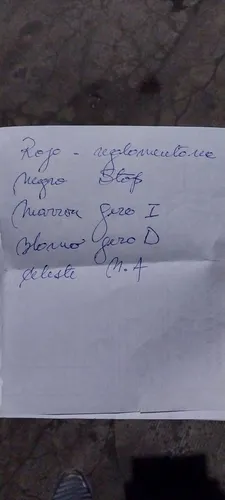 Rojo - reglamentaria
Negro Stop
Marron giro I
Blanco giro D
Celeste M.A